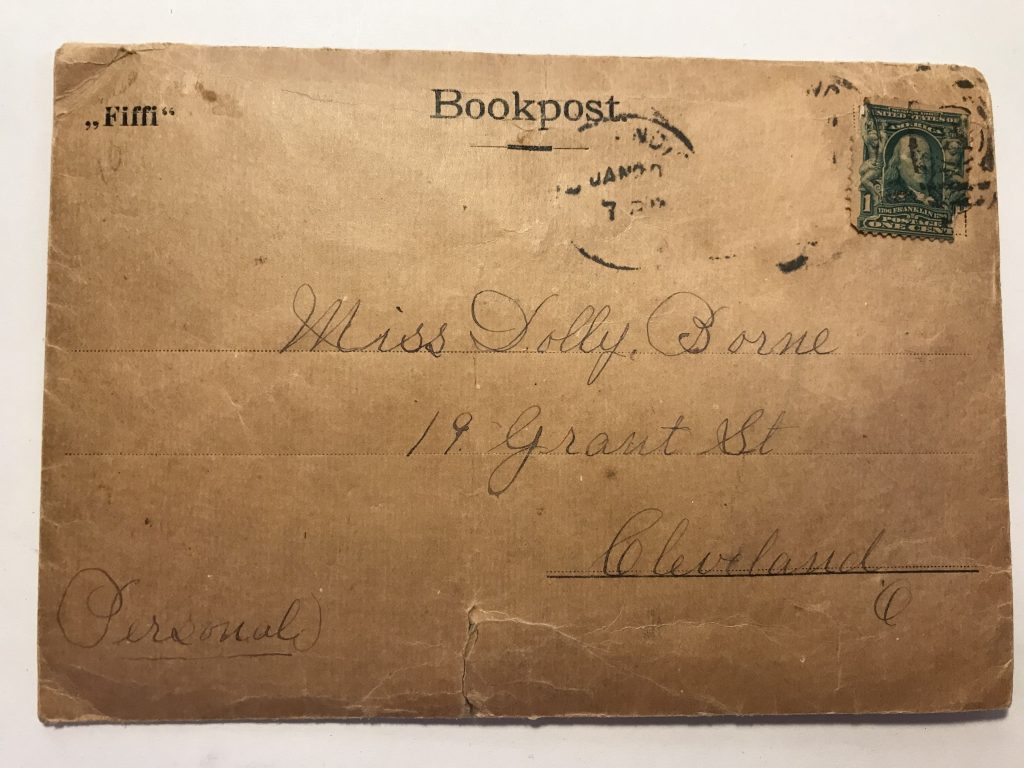 „Fiffi“
Bookpost.
JAN
7
UNITED STATES OF
AMERICA
1
FRANKLIN
POSTAGE
ONE CENT
Miss Dolly. Borne
19. Grant St
Cleveland
O
(Personal)